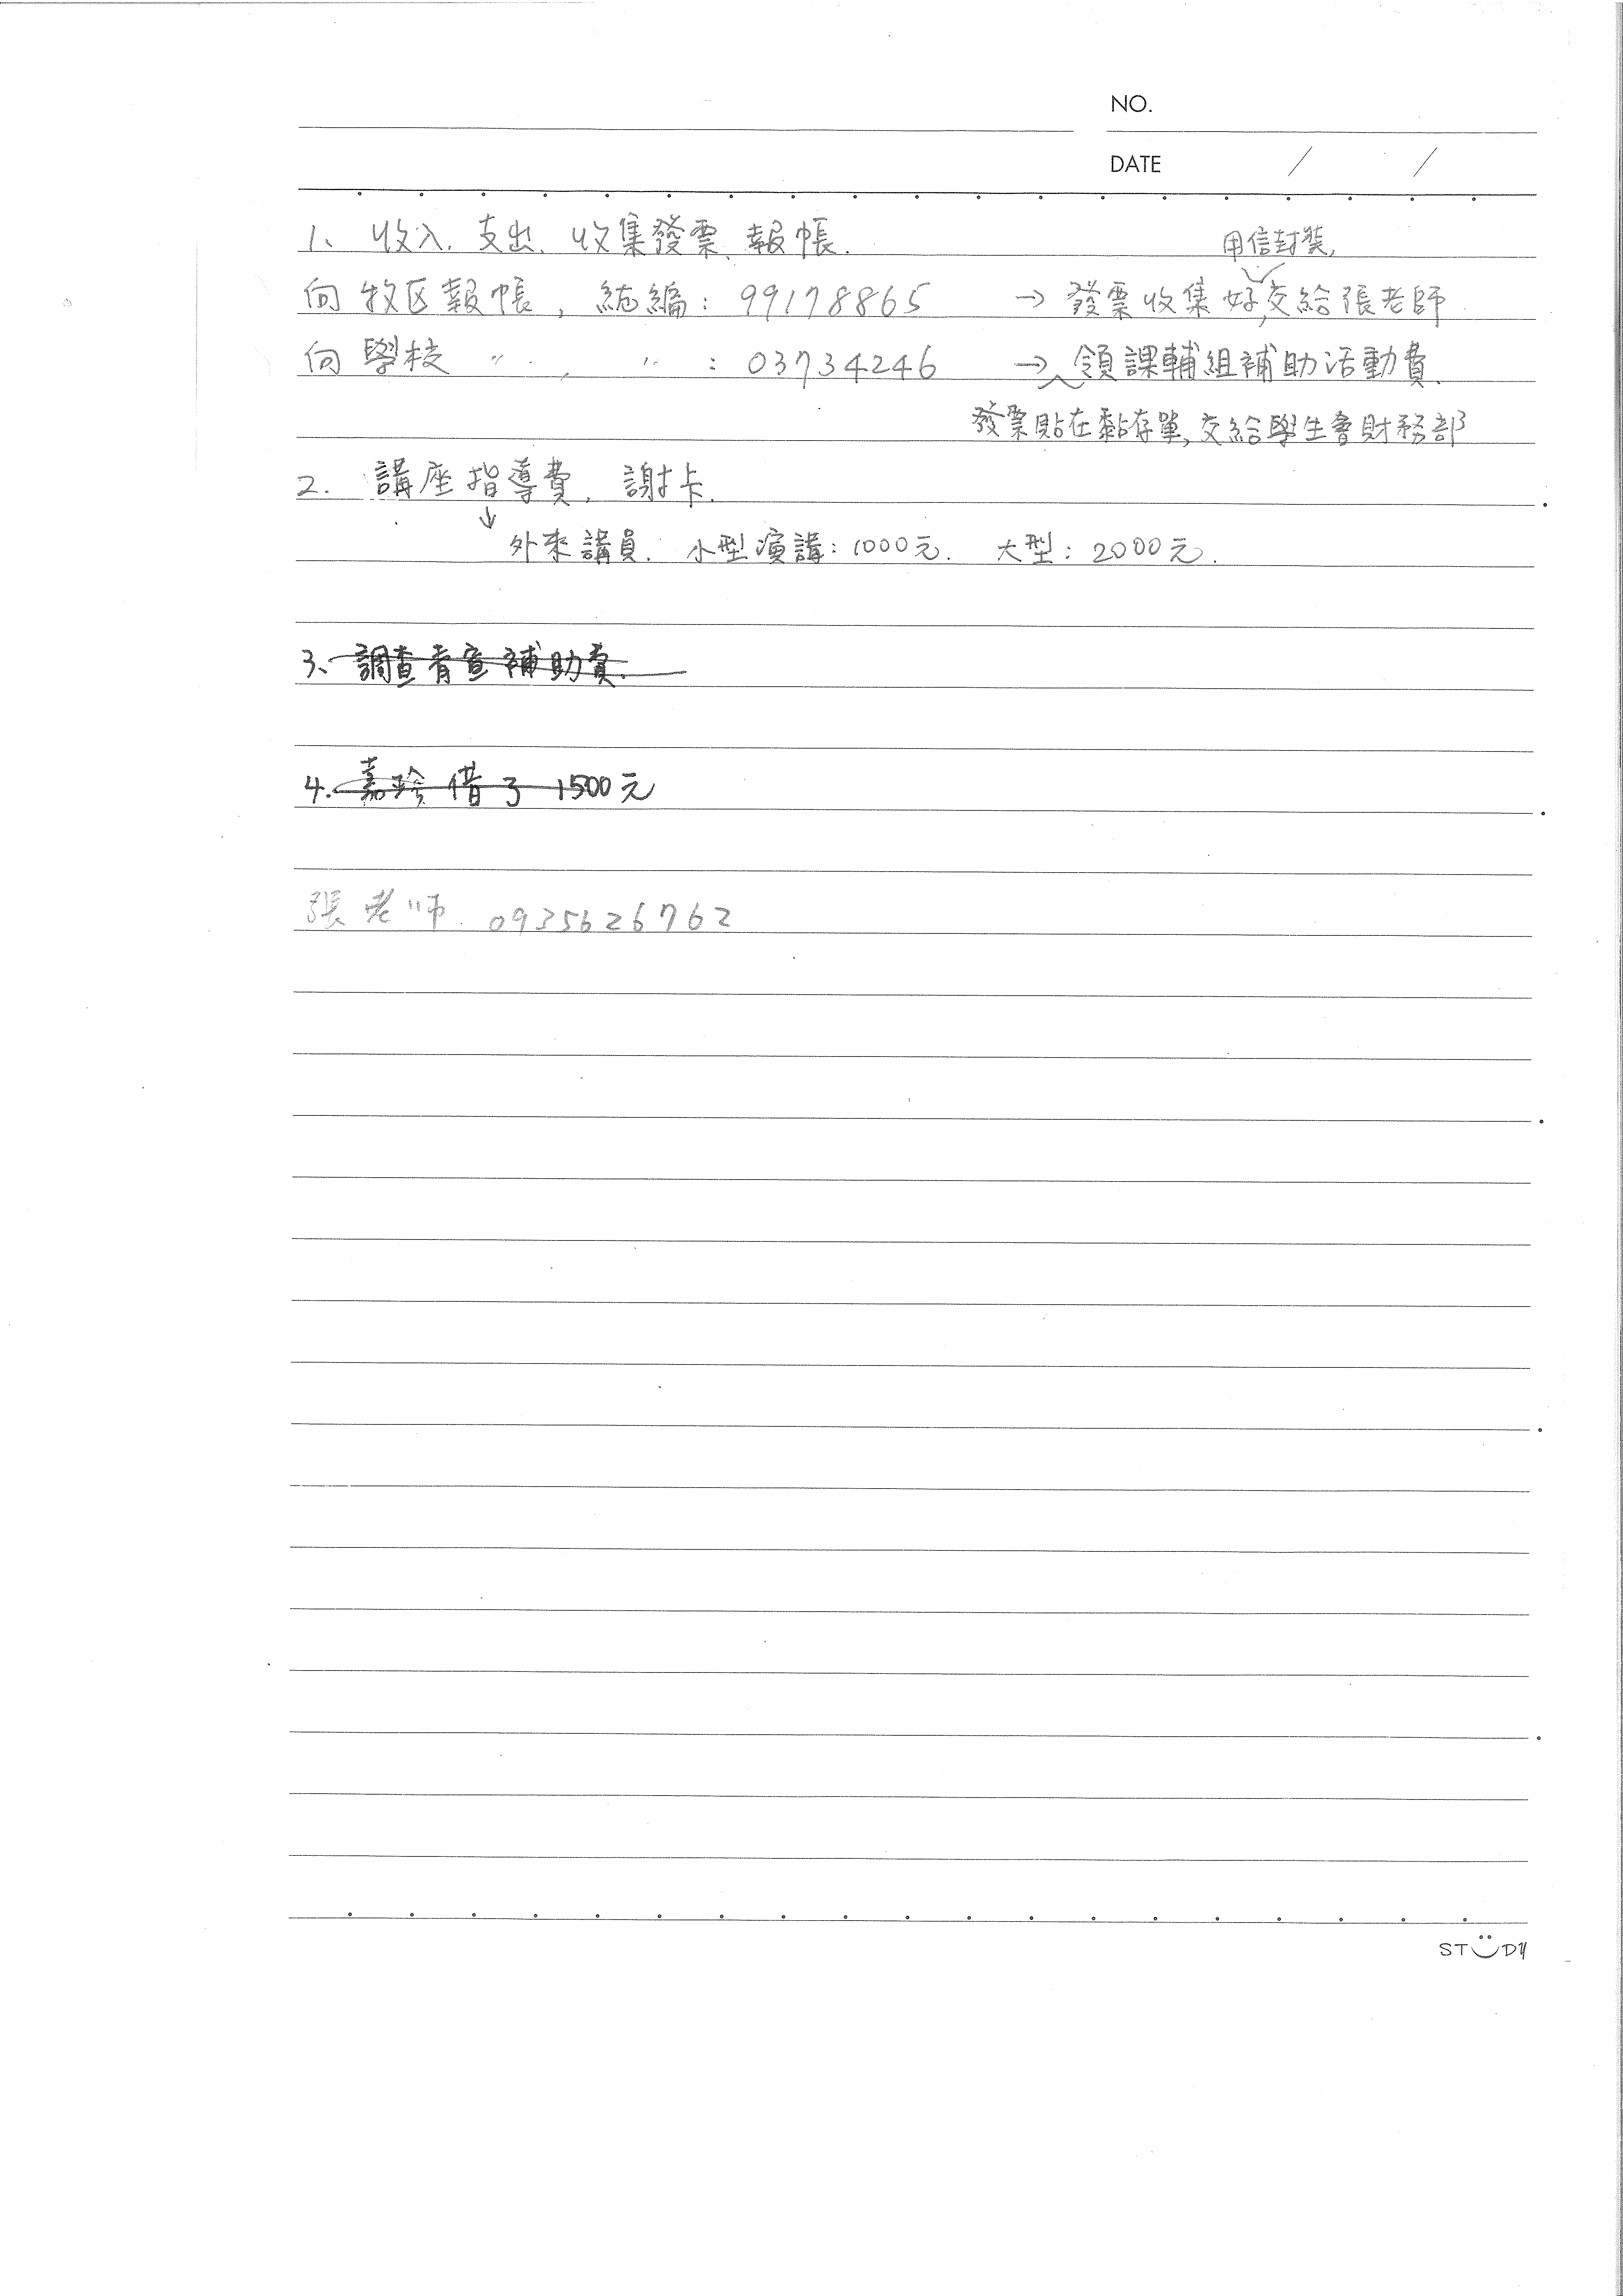 NO.
DATE / /
1、收入、支出、收集發票、報帳.
用信封裝,
向牧区報帳, 統編: 99178865 → 發票收集好,交給張老師
向學校 〃 , 〃 : 03734246 → 領課輔組補助活動費.
發票貼在黏存單,交給學生會財務部
2. 講座指導費, 謝卡.
↓
外來講員. 小型演講: 1000元. 大型: 2000元.
3、調查青宣補助費.
4. 嘉玲借了1500元
張老师. 0935626762
STUDY